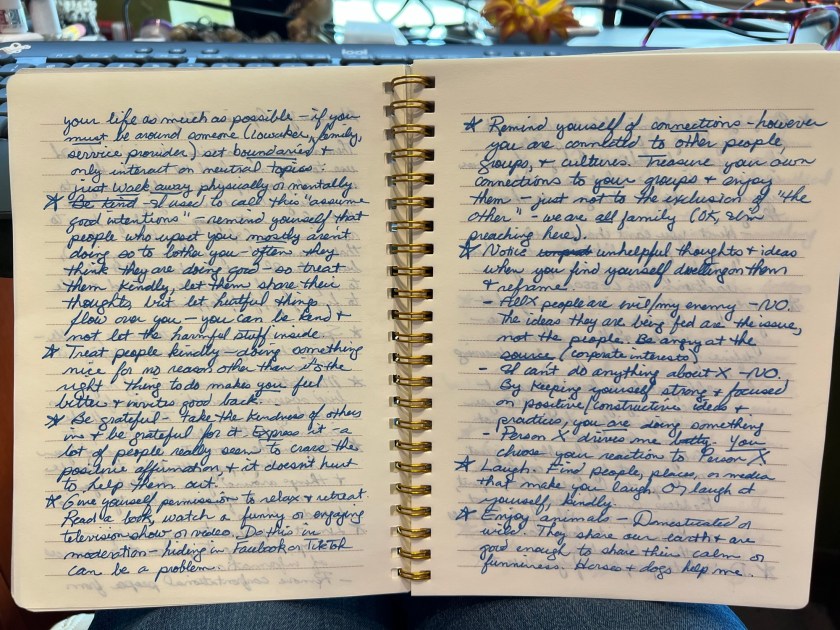 your life as much as possible - if you
must be around someone (coworker, family,
service provider) set boundaries &
only interact on neutral topics.
just walk away physically or mentally.
☆ Be kind - I used to call this "assume
good intentions" - remind yourself that
people who upset you mostly aren't
doing so to bother you - often they
think they are doing good - so treat
them kindly, let them share their
thoughts, but let hurtful things
flow over you - you can be kind &
not let the harmful stuff inside.
☆ Treat people kindly - doing something
nice for no reason other than it's the
"right" thing to do makes you feel
better & invites good back.
☆ Be grateful - take the kindness of others
in & be grateful for it. Express it - a
lot of people really seem to crave the
positive affirmation, & it doesn't hurt
to help them out.
☆ Give yourself permission to relax & retreat.
Read a book, watch a funny or engaging
television show or video. Do this in
moderation - hiding in Facebook or TikTok
can be a problem.
☆ Remind yourself of connections - however
you are connected to other people,
groups, & cultures. Treasure your own
connections to your groups & enjoy
them - just not to the exclusion of "the
other" - we are all family (OK, I'm
preaching here).
☆ Notice unhelpful thoughts & ideas
when you find yourself dwelling on them
& reframe.
- All X people are evil/my enemy - NO.
The ideas they are being fed are the issue,
not the people. Be angry at the
source (corporate interests)
- I can't do anything about X - NO.
By keeping yourself strong & focused
on positive/constructive ideas &
practices, you are doing something
- Person X drives me batty. You
choose your reaction to Person X
☆ Laugh. Find people, places, or media
that make you laugh. Or laugh at
yourself, kindly.
☆ Enjoy animals - Domesticated or
wild. They share our earth & are
good enough to share their calm or
funniness. Horses & dogs help me.